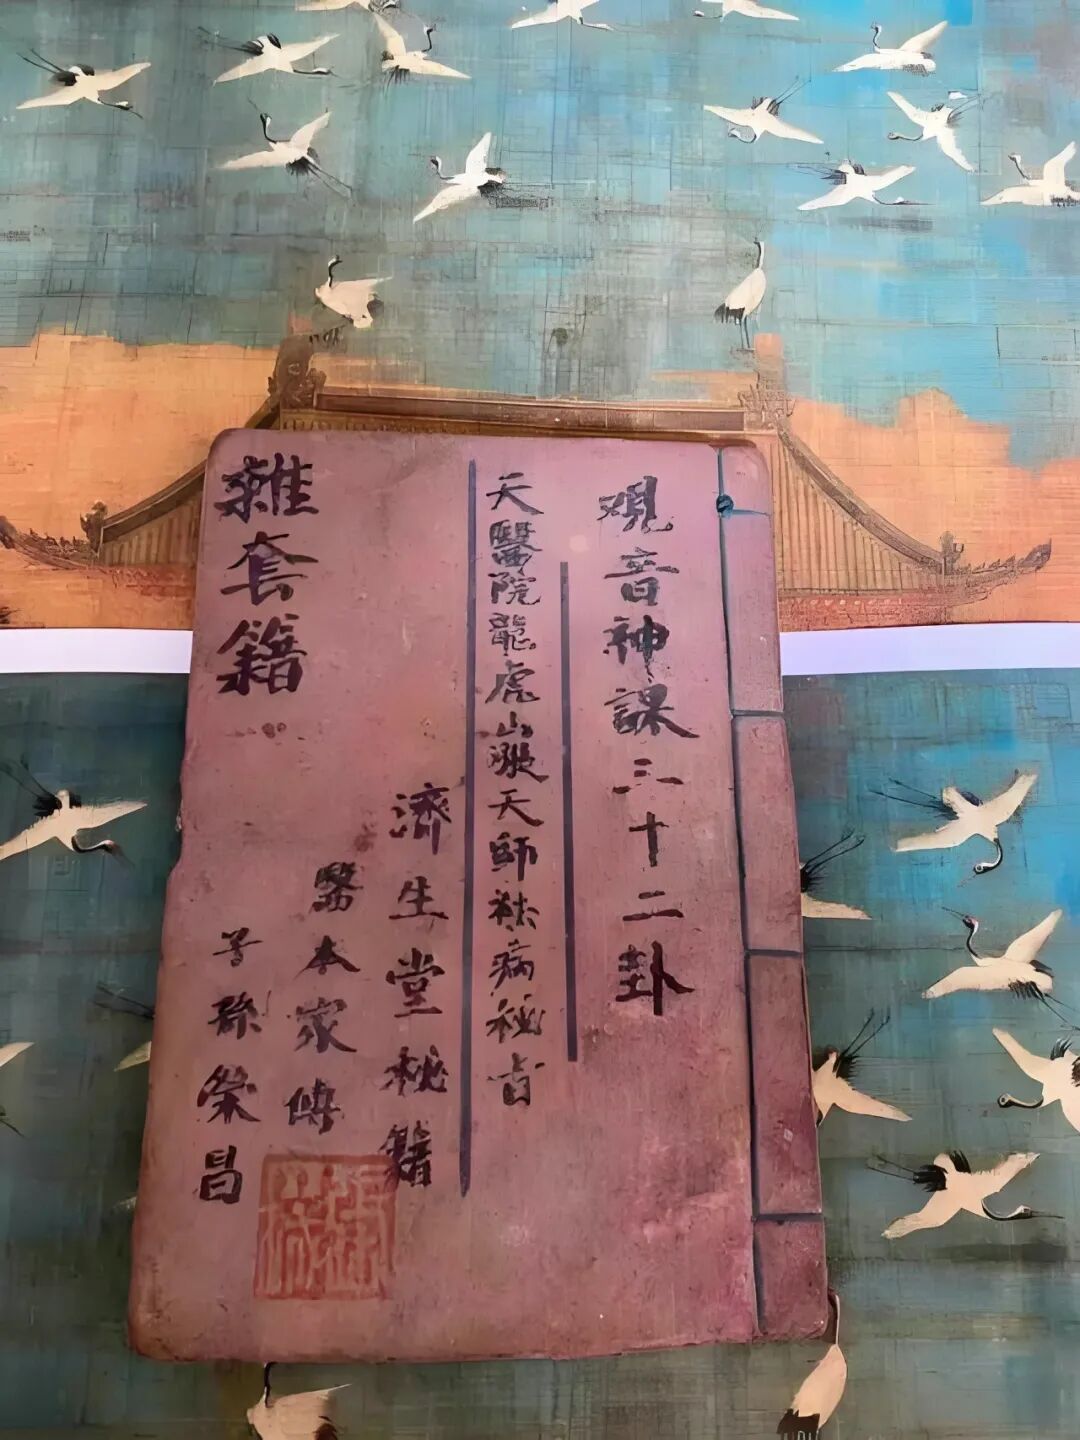 观音神課三十二卦
天醫院龍虎山張天師祛病秘旨
濟生堂秘籍
醫本家傳
子孫榮昌
雜套籍